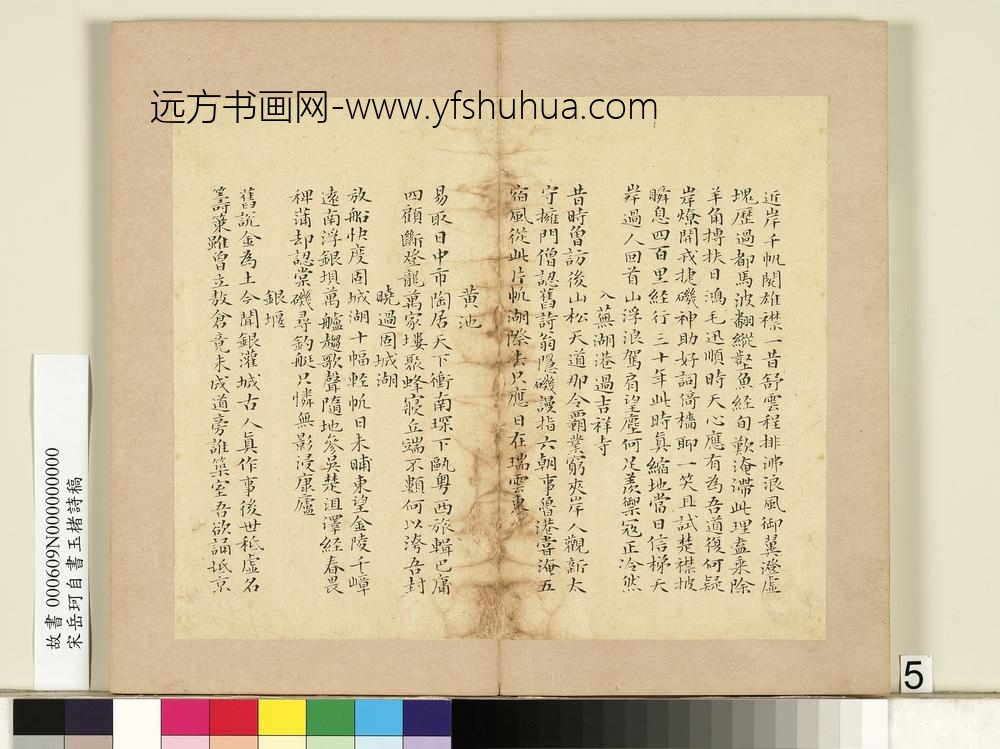 远方书画网-www.yfshuhua.com
近岸千帆闊雄襟一昔舒雲程排沸浪風御翼澄虛
塊歷過都馬波翻縱壑魚経旬歎淹滯此理盍乘除
羊角摶扶日鴻毛迅順時天心應有為吾道復何疑
岸燎開戎捷磯神助好詞倚檣聊一笑且試楚襟披
瞬息四百里経行三十年此時真縮地當日信梯天
岸過人回首山浮浪駕肩望塵何足羨禦冦正泠然
入蕪湖港過吉祥寺
昔時曾訪後山松天道那今霸業窮夾岸人觀新太
守擁門僧認舊詩翁隱磯謾指六朝事魯港嘗淹五
宿風從此片帆湖際去只應日在瑞雲東
黄池
易取日中市陶居天下衝南琛下甌粤西旅輯巴庸
四顧斷登龍萬家塿聚蜂寢丘端不顭何以涴吾封
曉過固城湖
放船快度固城湖十幅軽帆日未晡東望金陵千嶂
遠南浮銀埧萬艫趨歌聲隨地參吳楚沮澤経春畏
稗蒲却認棠磯尋釣艇只憐無影浸康廬
銀堰
舊說金為土今聞銀灌城古人真作事後世秪虛名
籌策雖曾立敖倉竟未成道旁誰築室吾欲誦坻京
故書 000609N000000000
宋岳珂自書玉楮詩稿
5